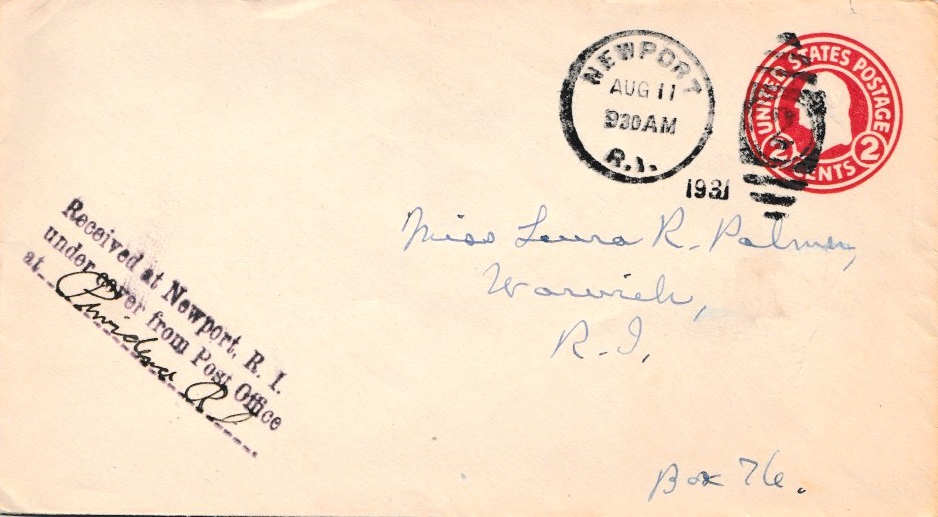 NEWPORT
AUG 11
930AM
R.I.
1931
UNITED STATES POSTAGE
2 CENTS 2
Miss Laura R. Palmer,
Warwick,
R.I.
Received at Newport, R. I.
under cover from Post Office
at Providence RI
Box 76.